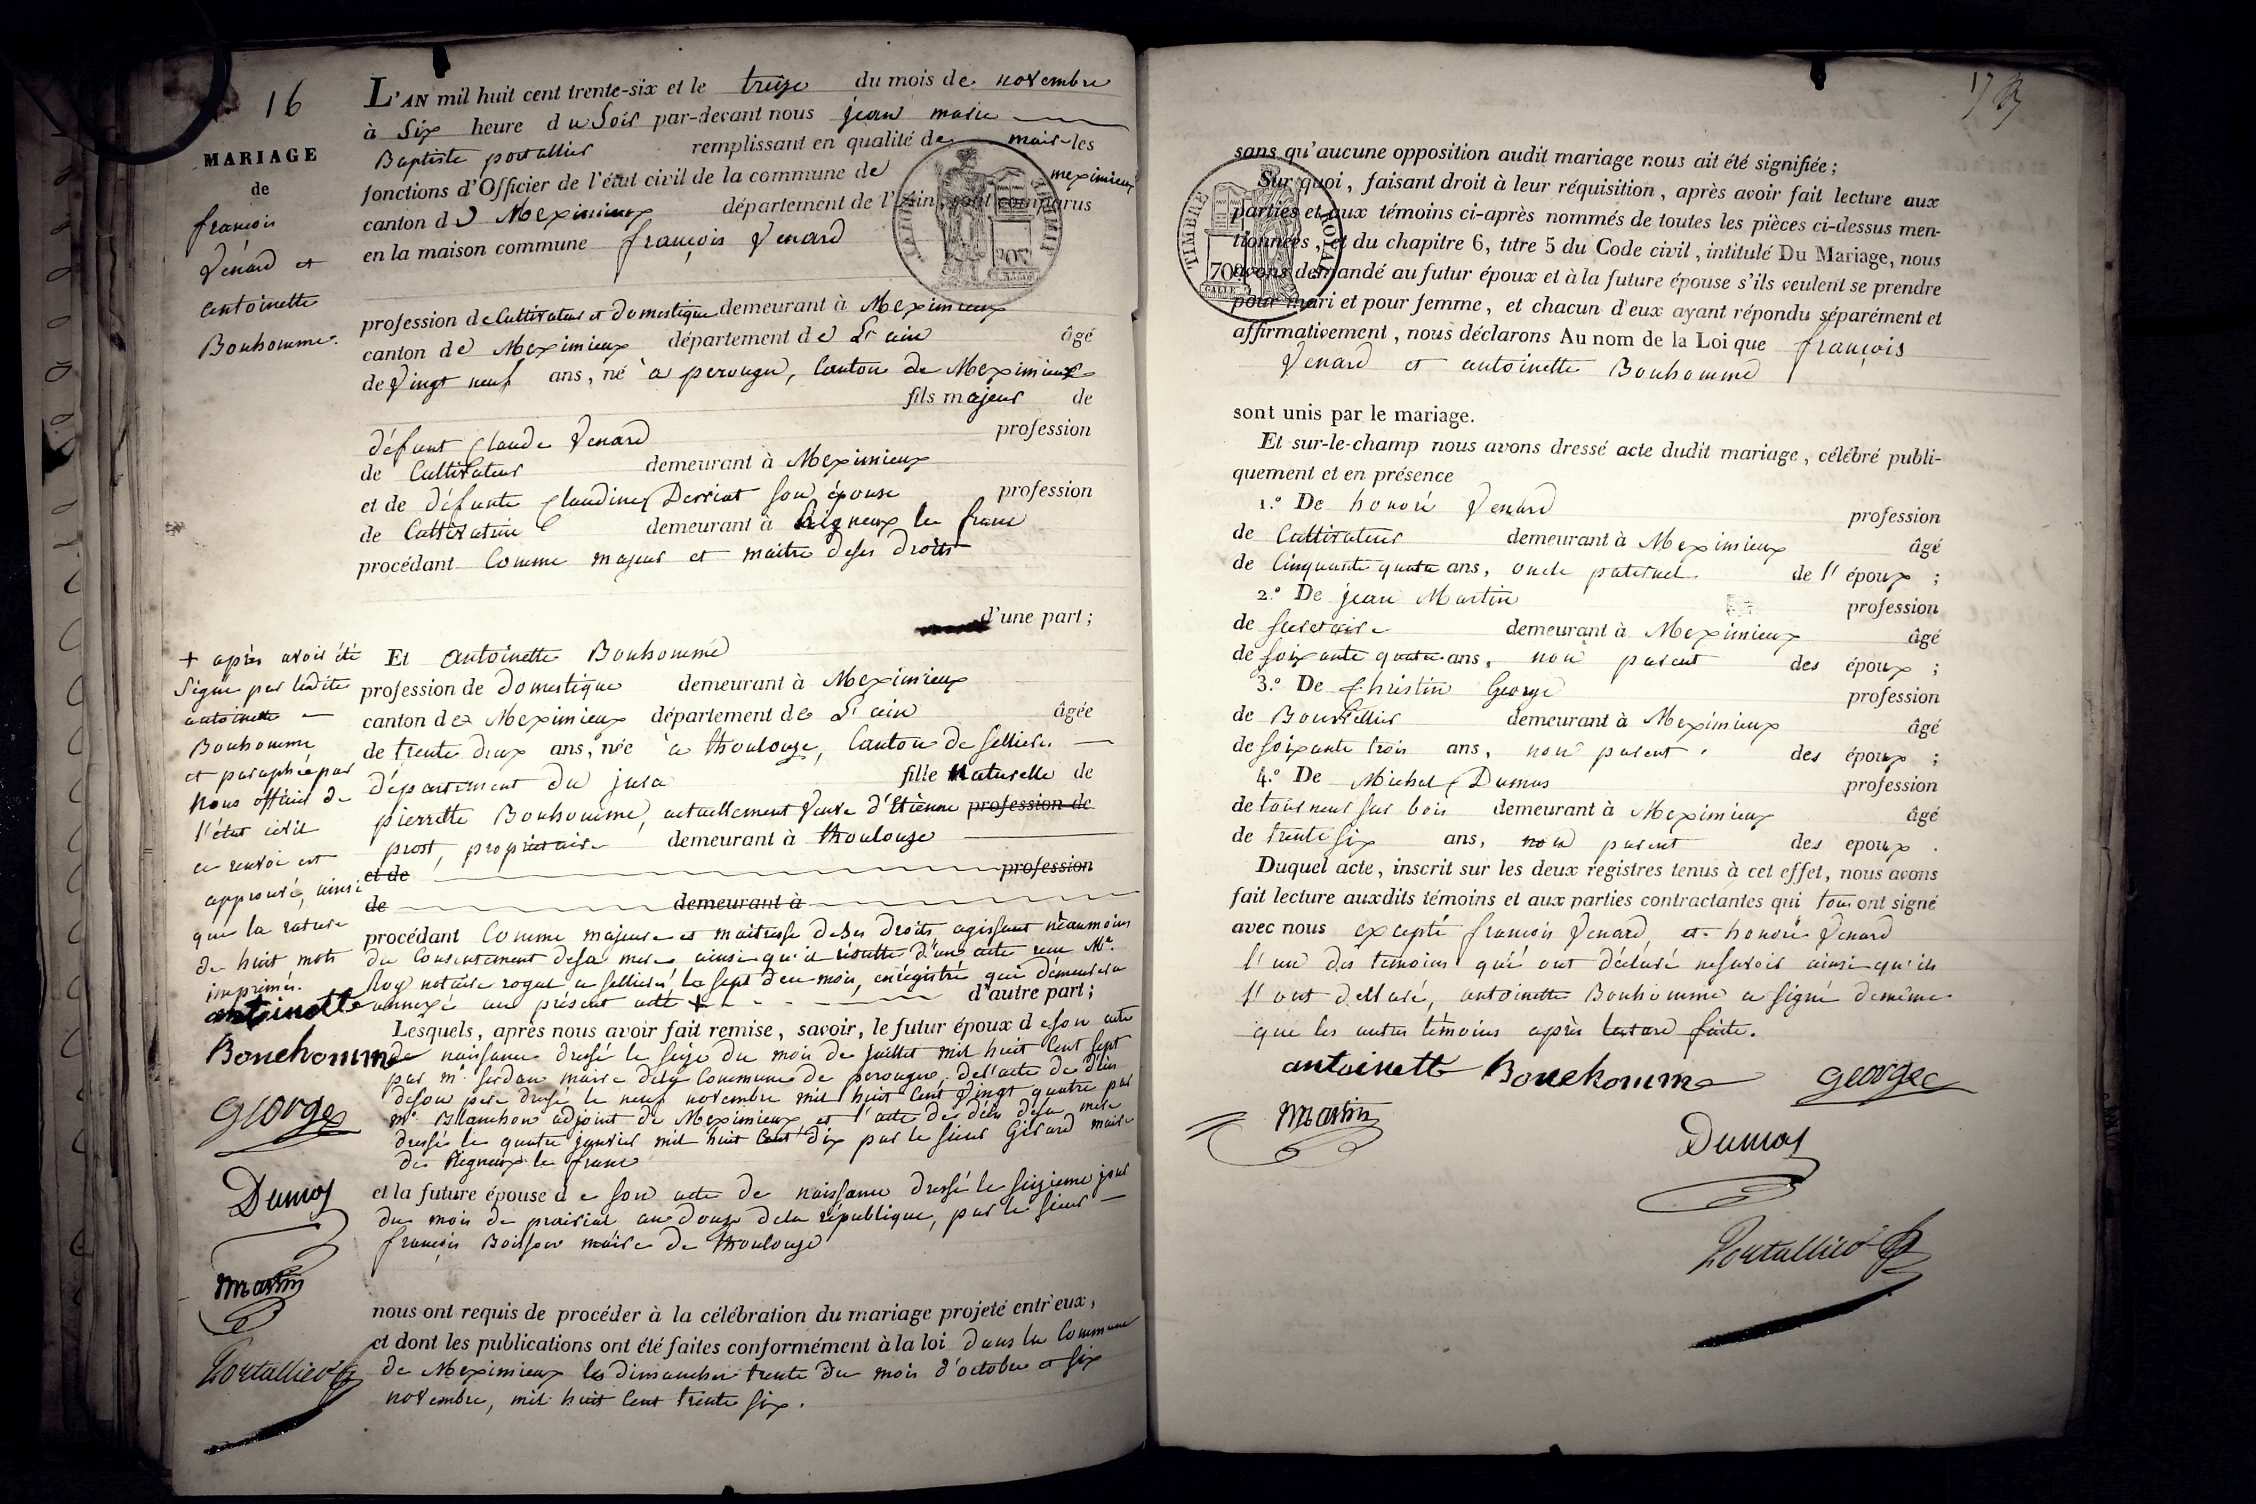 16
MARIAGE
de
françois
Venard et
antoinette
Bonhomme.
L'AN mil huit cent trente-six et le treize du mois de novembre
à Six heure du Soir par-devant nous jean marie
Baptiste portallier remplissant en qualité de maire les
fonctions d'Officier de l'état civil de la commune de meximieux
canton de Meximieux département de l'Ain, sont comparus
en la maison commune françois Venard
profession de Cultivateur et domestique demeurant à Meximieux
canton de Meximieux département de L'ain âgé
de Vingt neuf ans, né à perouges, Canton de Meximieux
fils majeur de
défunt Claude Venard profession
de Cultivateur demeurant à Meximieux
et de défunte Claudine Derriat son épouse profession
de Cultivatrice demeurant à Rigneux le franc
procédant Comme majeur et maitre deses droits
d'une part ;
Et antoinette Bonhomme
profession de domestique demeurant à Meximieux
canton de Meximieux département de L'ain âgée
de trente deux ans, née à thoulouze, Canton de Selliers
département du jura fille Naturelle de
pierrette Bonhomme, actuellement Veuve d'Etienne profession de
prost, propriétaire demeurant à thoulouze
et de profession
de demeurant à
procédant Comme majeure et maitresse deses droits agissant néaumoins
du Consentement desa mere ainsi qu'il résulte d'un acte reçu Me.
Roy notaire royal a Selliers, le sept deu mois, enrégistré qui demeurera
annexé au présent acte + d'autre part ;
+ après avoir été
Signé par ladite
antoinette
Bonhomme
et paraphée par
Nous officier de
l'état civil
ce renvoi est
approuvé, ainsi
que la rature
de huit mots
imprimés.
antoinette
Bonehomme
George
Dumas
Martin
Portallier
Lesquels, après nous avoir fait remise, savoir, le futur époux de son acte
de naissance dressé le seize du mois de juillet mil huit Cent sept
par mr. jordan maire dela Commune de perouges. del'acte de décès
deson pere dressé le neuf novembre mil huit Cent Vingt quatre par
mr. Blanchon adjoint de Meximieux et l'acte de décès desa mere
dressé le quatre janvier mil huit Cent dix par le sieur Girard maire
de Rigneux le franc
et la future épouse de son acte de naissance dressé le seizieme jour
du mois de prairial an douze dela république, par le sieur
françois Boisson maire de thoulouze
nous ont requis de procéder à la célébration du mariage projeté entr'eux,
et dont les publications ont été faites conformément à la loi dans la Commune
de Meximieux les dimanches trente du mois d'octobre et six
novembre, mil huit Cent trente six.
TIMBRE ROYAL
70c
sans qu'aucune opposition audit mariage nous ait été signifiée ;
Sur quoi, faisant droit à leur réquisition, après avoir fait lecture aux
parties et aux témoins ci-après nommés de toutes les pièces ci-dessus men-
tionnées, et du chapitre 6, titre 5 du Code civil, intitulé Du Mariage, nous
avons demandé au futur époux et à la future épouse s'ils veulent se prendre
pour mari et pour femme, et chacun d'eux ayant répondu séparément et
affirmativement, nous déclarons Au nom de la Loi que françois
Venard et antoinette Bonhomme
sont unis par le mariage.
Et sur-le-champ nous avons dressé acte dudit mariage, célébré publi-
quement et en présence
1.º De honoré Venard profession
de Cultivateur demeurant à Meximieux âgé
de Cinquante quatre ans, oncle paternel de l'époux ;
2.º De jean Martin profession
de secretaire demeurant à Meximieux âgé
de soixante quatre ans, non parent des époux ;
3.º De Christin George profession
de Bourrellier demeurant à Meximieux âgé
de soixante trois ans, non parent des époux ;
4.º De Michel Dumas profession
de tourneur sur bois demeurant à Meximieux âgé
de trente six ans, non parent des epoux.
Duquel acte, inscrit sur les deux registres tenus à cet effet, nous avons
fait lecture auxdits témoins et aux parties contractantes qui tous ont signé
avec nous excepté françois Venard et honoré Venard
l'un des témoins qui ont déclaré nesavoir ainsi qu'ils
l'ont déclaré, antoinette Bonhomme a signé demême
que les autres témoins après lecture faite.
antoinette Bonehomme George
Martin
Dumas
Portallier